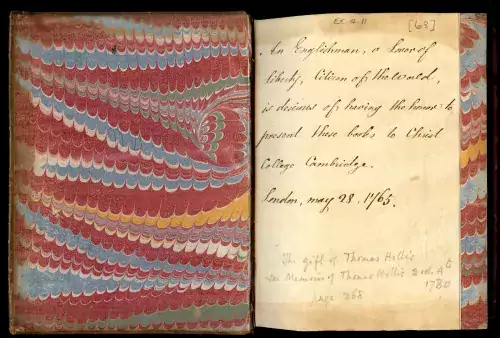 Ex. 4. 11
[63]
An Englishman, a Lover of
liberty, Citizen of the World,
is desirous of having the honor to
present these books to Christ
College Cambridge.
London, may 28, 1765.
The gift of Thomas Hollis
see Memoirs of Thomas Hollis
1780
page 268